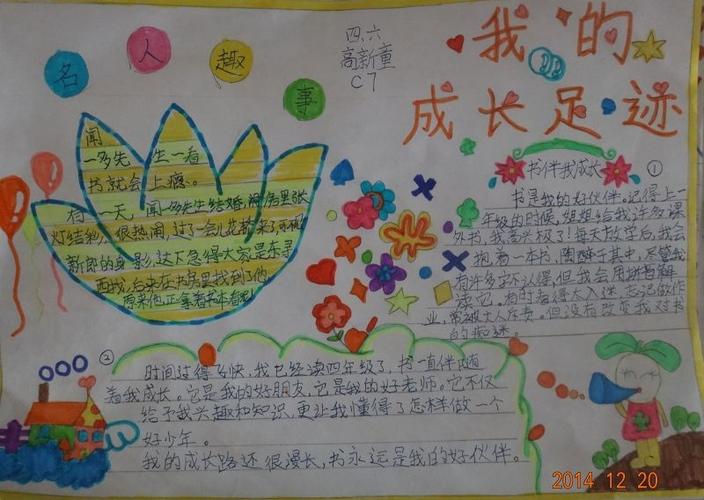 名人趣事
四.六
高新童
C7
我的
成长足迹
闻
一多先生一看
书就会上瘾。
有一天,闻一多先生结婚,洞房里张
灯结彩,很热闹,过了一会儿花轿来了,可不见
新郎的身影,这下急得大家是东寻
西找,后来在书房里找到了他,
原来他正拿着书本看呢!
书伴我成长
①
书是我的好伙伴。记得上一
年级的时候,妈妈给我许多课
外书,我高兴极了!每天放学后,我会
抱着一本书,陶醉于其中,尽管我
有许多字不认得,但我会用拼音解
读它。有时看得太入迷,忘记做作
业,常被大人斥责。但没有改变我对书
的痴迷。
②
时间过得飞快,我已经读四年级了,书一直伴随
着我成长。它是我的好朋友,它是我的好老师。它不仅
给予我兴趣和知识,更让我懂得了怎样做一个
好少年。
我的成长路还很漫长,书永远是我的好伙伴。
2014 12 20